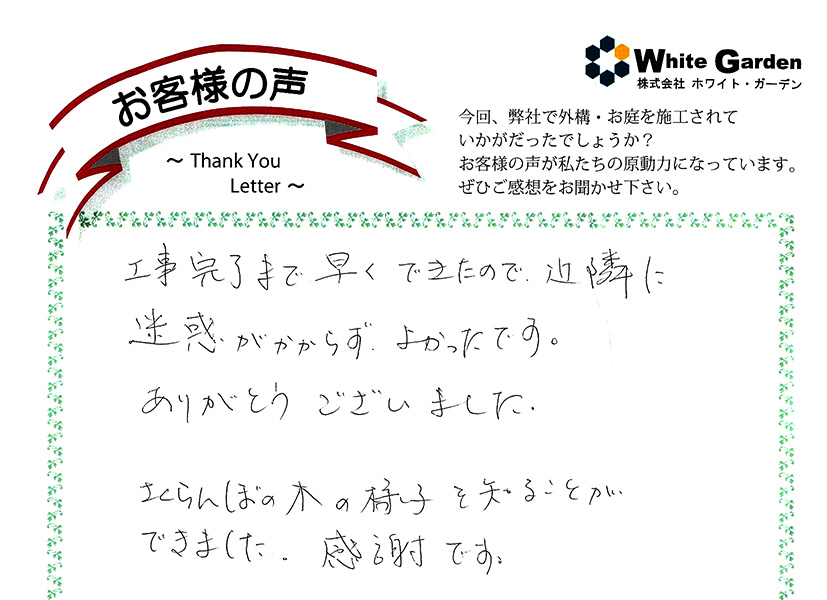 お客様の声
～ Thank You
Letter ～
White Garden
株式会社 ホワイト・ガーデン
今回、弊社で外構・お庭を施工されて
いかがだったでしょうか？
お客様の声が私たちの原動力になっています。
ぜひご感想をお聞かせ下さい。
工事完了まで早くできたので、近隣に
迷惑がかからず、よかったです。
ありがとうございました。
さくらんぼの木の様子を知ることが
できました。感謝です。